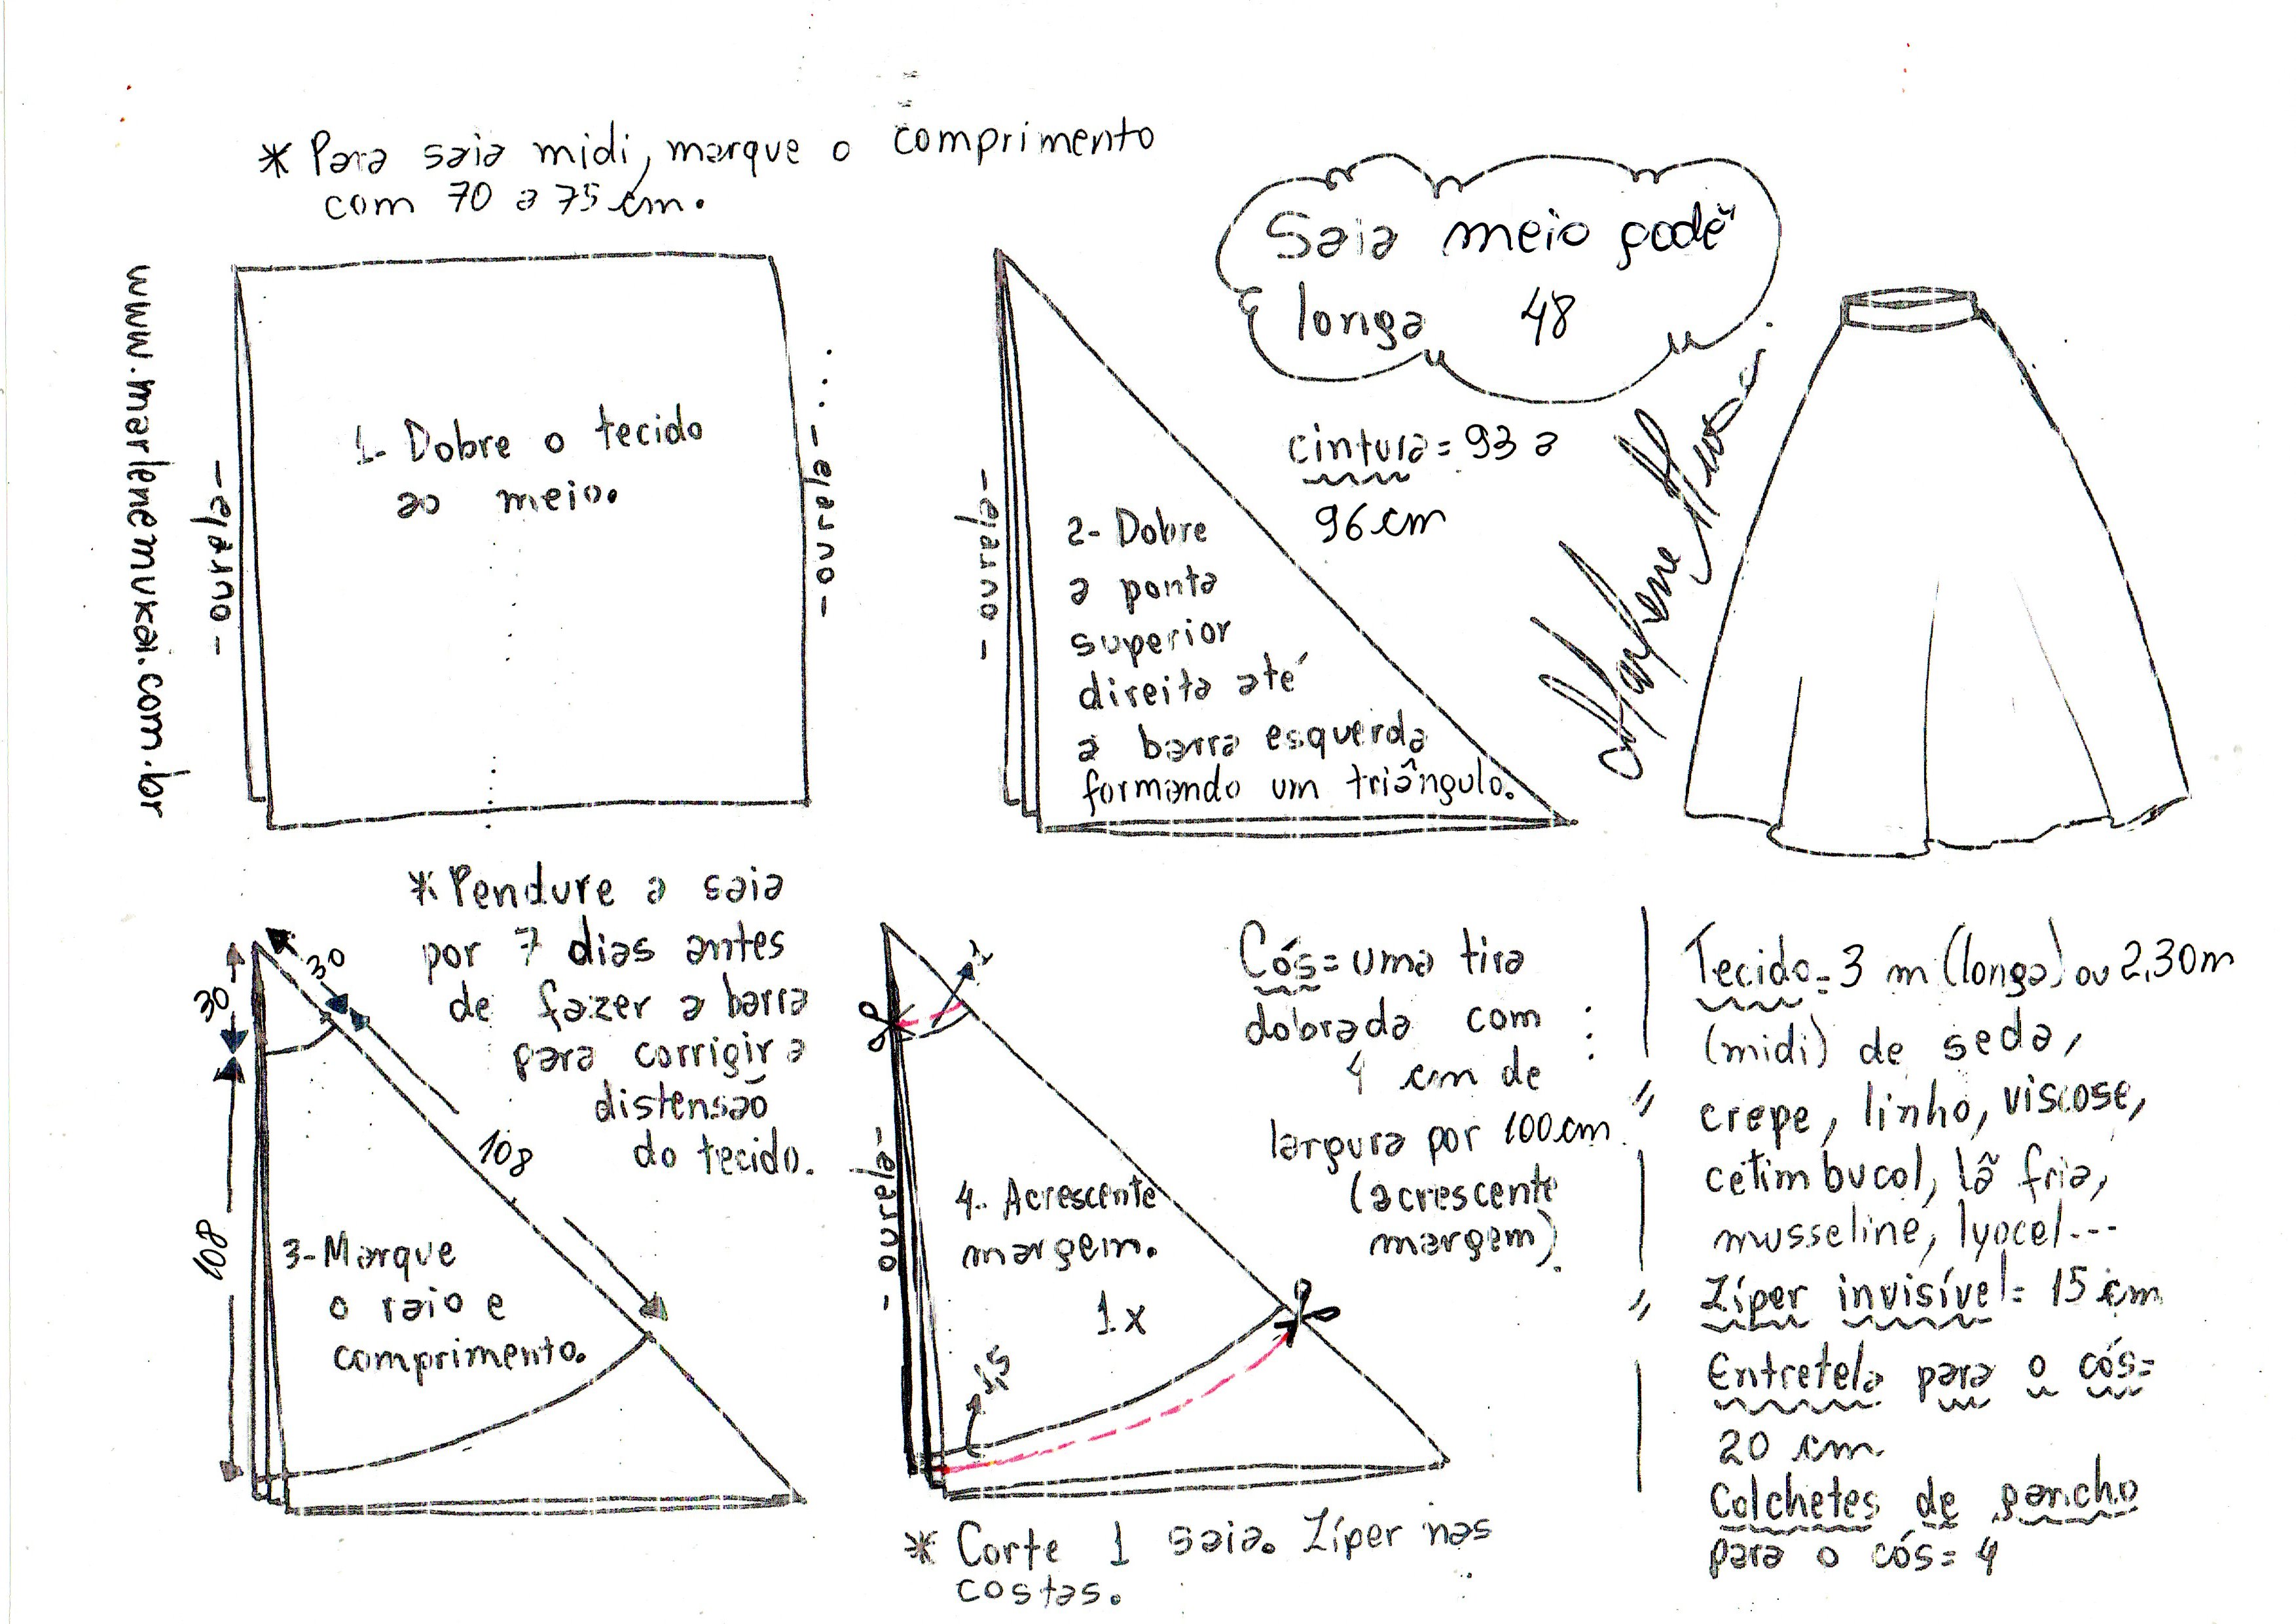 * Para saia midi, marque o comprimento
com 70 a 75 cm.
www.marlenemukai.com.br
- ourela -
1- Dobre o tecido
ao meio.
- ourela -
- ourela -
2- Dobre
a ponta
superior
direita até
a barra esquerda
formando um triângulo.
Saia meio godê
longa 48
cintura = 93 a
96 cm
Marlene Mukai
* Pendure a saia
por 7 dias antes
de fazer a barra
para corrigir a
distensão
do tecido.
30
30
108
108
3- Marque
o raio e
comprimento.
1
- ourela -
4- Acrescente
margem.
1x
1,5
* Corte 1 saia. Zíper nas
costas.
Cós = uma tira
dobrada com
4 cm de
largura por 100 cm
(acrescente
margem).
Tecido = 3 m (longa) ou 2,30m
(midi) de seda,
crepe, linho, viscose,
cetim bucol, lã fria,
musseline, lyocel...
Zíper invisível = 15 cm
Entretela para o cós =
20 cm
Colchetes de gancho
para o cós = 4